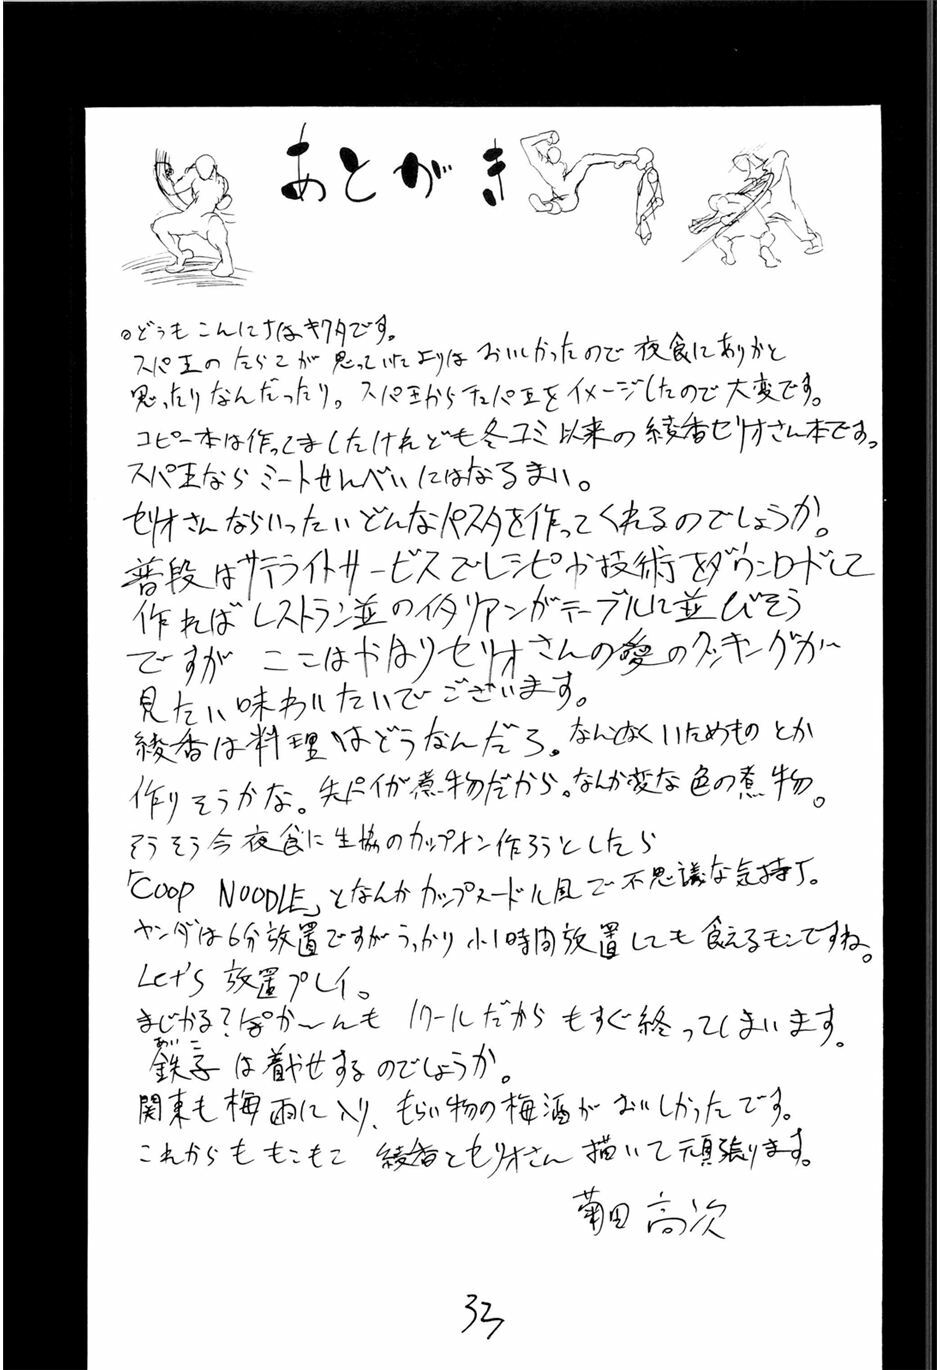 あとがき
○どうもこんにちはキクタです。
スパ王のたらこが思っていたよりはおいしかったので夜食にありかと
思ったりなんだったり。スパ王からチパ王をイメージしたので大変です。
コピー本は作ってましたけれども冬コミ以来の綾香セリオさん本です。
スパ王ならミートせんべいにはなるまい。
セリオさんならいったいどんなパスタを作ってくれるのでしょうか。
普段はサテライトサービスでレシピや技術をダウンロードして
作ればレストラン並のイタリアンがテーブルに並びそう
ですが ここはやはりセリオさんの愛のクッキングが
見たい味わいたいでございます。
綾香は料理はどうなんだろ。なんとなくいためものとか
作りそうかな。先パイが煮物だから。なんか変な色の煮物。
そうそう今夜食に生協のカップオン作ろうとしたら
「COOP NOODLE」となんかカップヌードル風で不思議な気持ち。
ヤンダは6分放置ですがうっかり小1時間放置しても食えるモンですね。
Let's 放置プレイ。
まじかる?ぽか〜んも 1クールだからもすぐ終ってしまいます。
鉄子は着やせするのでしょうか。
あいこ
関東も梅雨に入り、もらい物の梅酒がおいしかったです。
これからももこもこ 綾香とセリオさん描いて頑張ります。
菊田 高次
33